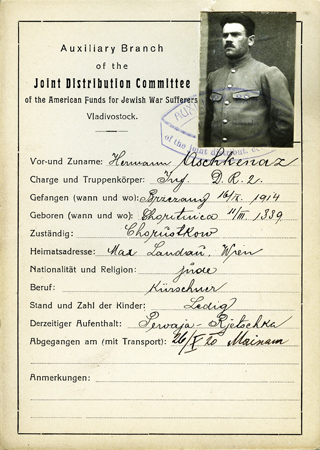 Auxiliary Branch
of the
Joint Distribution Committee
of the American Funds for Jewish War Sufferers
Vladivostock.
AUXI
of the joint distribut. c
Vor-und Zuname: Hermann Aschkenaz
Charge und Truppenkörper: Inf. D.R.2.
Gefangen (wann und wo): 1914
Geboren (wann und wo): 11/III. 1339
Zuständig: Chopustkow
Heimatsadresse: Max Landau, Wien
Nationalität und Religion: jüde
Beruf: Kürschner
Stand und Zahl der Kinder: Ledig
Derzeitiger Aufenthalt: Perwaja-Rjetschka
Abgegangen am (mit Transport): 26/X 20 Mainam
Anmerkungen: